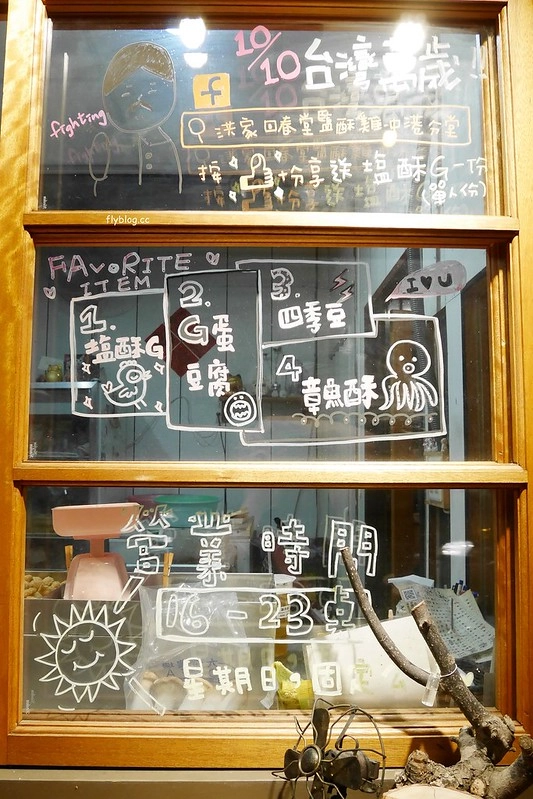 10/10 台灣萬歲!!
fighting
f
洪家回春堂鹽酥雞-四港分堂
按 份享送 塩酥G一份
(單人份)
flyblog.cc
FAVORITE
ITEM
1.
塩酥G
2.
G蛋
豆腐
3.
四季豆
I ♥ U
4
章魚酥
營業時間
16-23點
星期日,固定